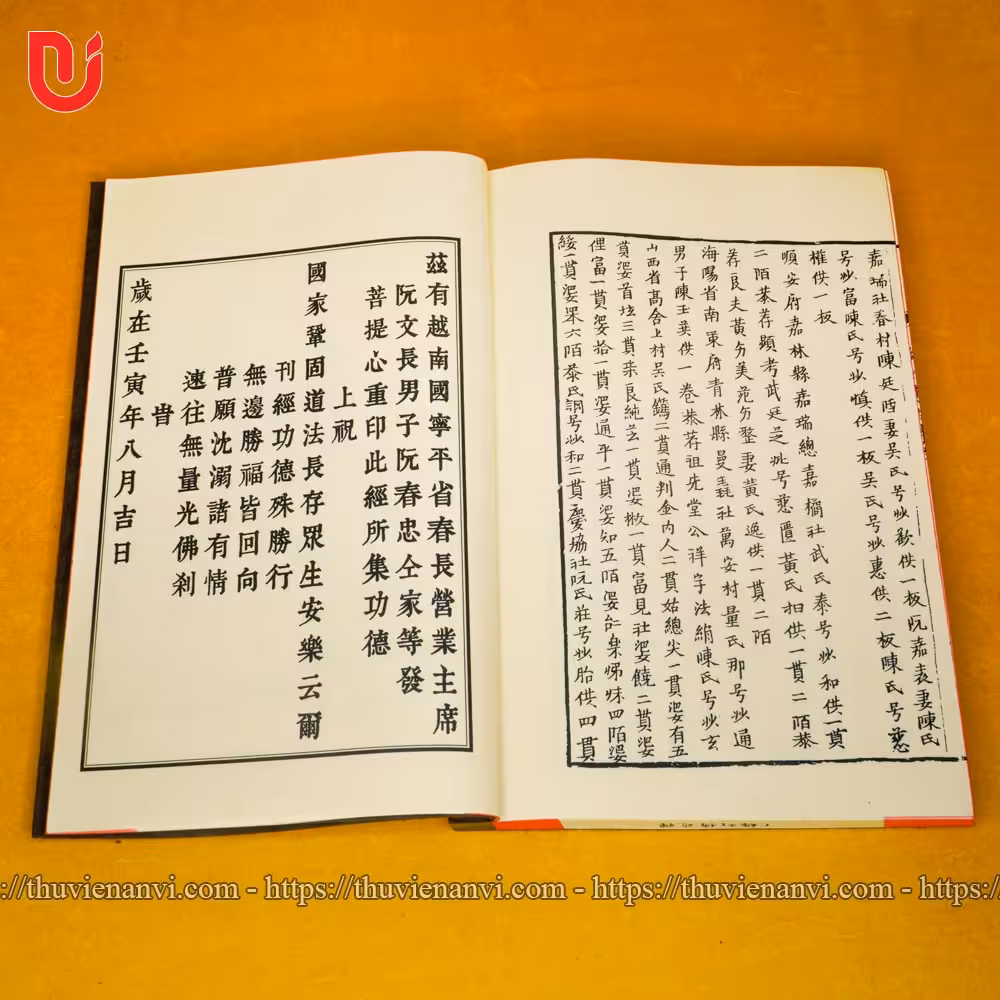 嘉瑞社春村陳廷酉妻吳氏号妙歡供一板阮嘉表妻陳氏
号妙富陳氏号妙慎供一板吳氏号妙惠供二板陳氏号慈
供一板
順安府嘉林縣嘉瑞總嘉橘社武氏泰号妙和供一貫
二陌恭荐顕考武廷芝 号慈 黃氏 供一貫二陌恭
荐良夫黃 美 妻黃氏 供一貫二陌
海陽省南東府青林縣曼 社萬安村 氏那号妙通
男子陳玉 供一卷恭荐祖先堂公祥字法絹陳氏号妙玄
山西省高舍上村吳氏 二貫通判金內人二貫姑總尖一貫婆有五
貫婆首 三貫 良純 一貫婆 一貫富見社婆饒二貫婆
俚富一貫婆拾一貫婆通平一貫婆知五陌婆 娣妹四陌婆
綏一貫婆果六陌 氏 号妙和二貫慶協社阮氏莊号妙胎供四貫
茲有越南國寧平省春長營業主席
阮文長男子阮春忠仝家等發
菩提心重印此經所集功德
上祝
國家鞏固道法長存眾生安樂云爾
刊經功德殊勝行
無邊勝福皆回向
普願沈溺諸有情
速往無量光佛剎
旹
歲在壬寅年八月吉日
://thuvienanvi.com - https://thuvienanvi.com - https://thuvienanvi.com - https:/